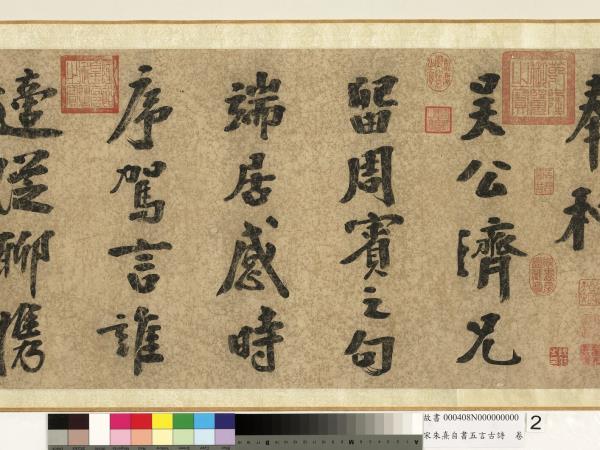 奉和
吳公濟兄
留周賓之句
端居感時
序駕言誰
適從聊攜
故書 000408N000000000
宋朱熹自書五言古詩 卷
2